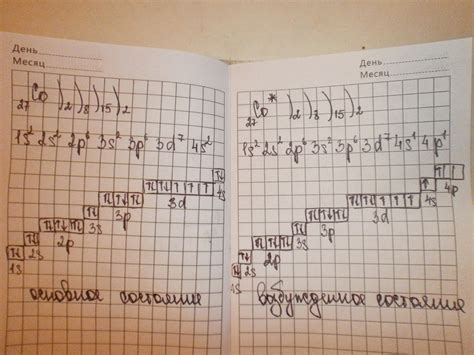 День
Месяц
27 Co )2)8)15)2
1s² 2s² 2p⁶ 3s² 3p⁶ 3d⁷ 4s²
4s
3d
3p
3s
2p
2s
1s
основное состояние
День
Месяц
27 Co* )2)8)15)2
1s² 2s² 2p⁶ 3s² 3p⁶ 3d⁷ 4s¹ 4p¹
4p
4s
3d
3p
3s
2p
2s
1s
возбужденное состояние